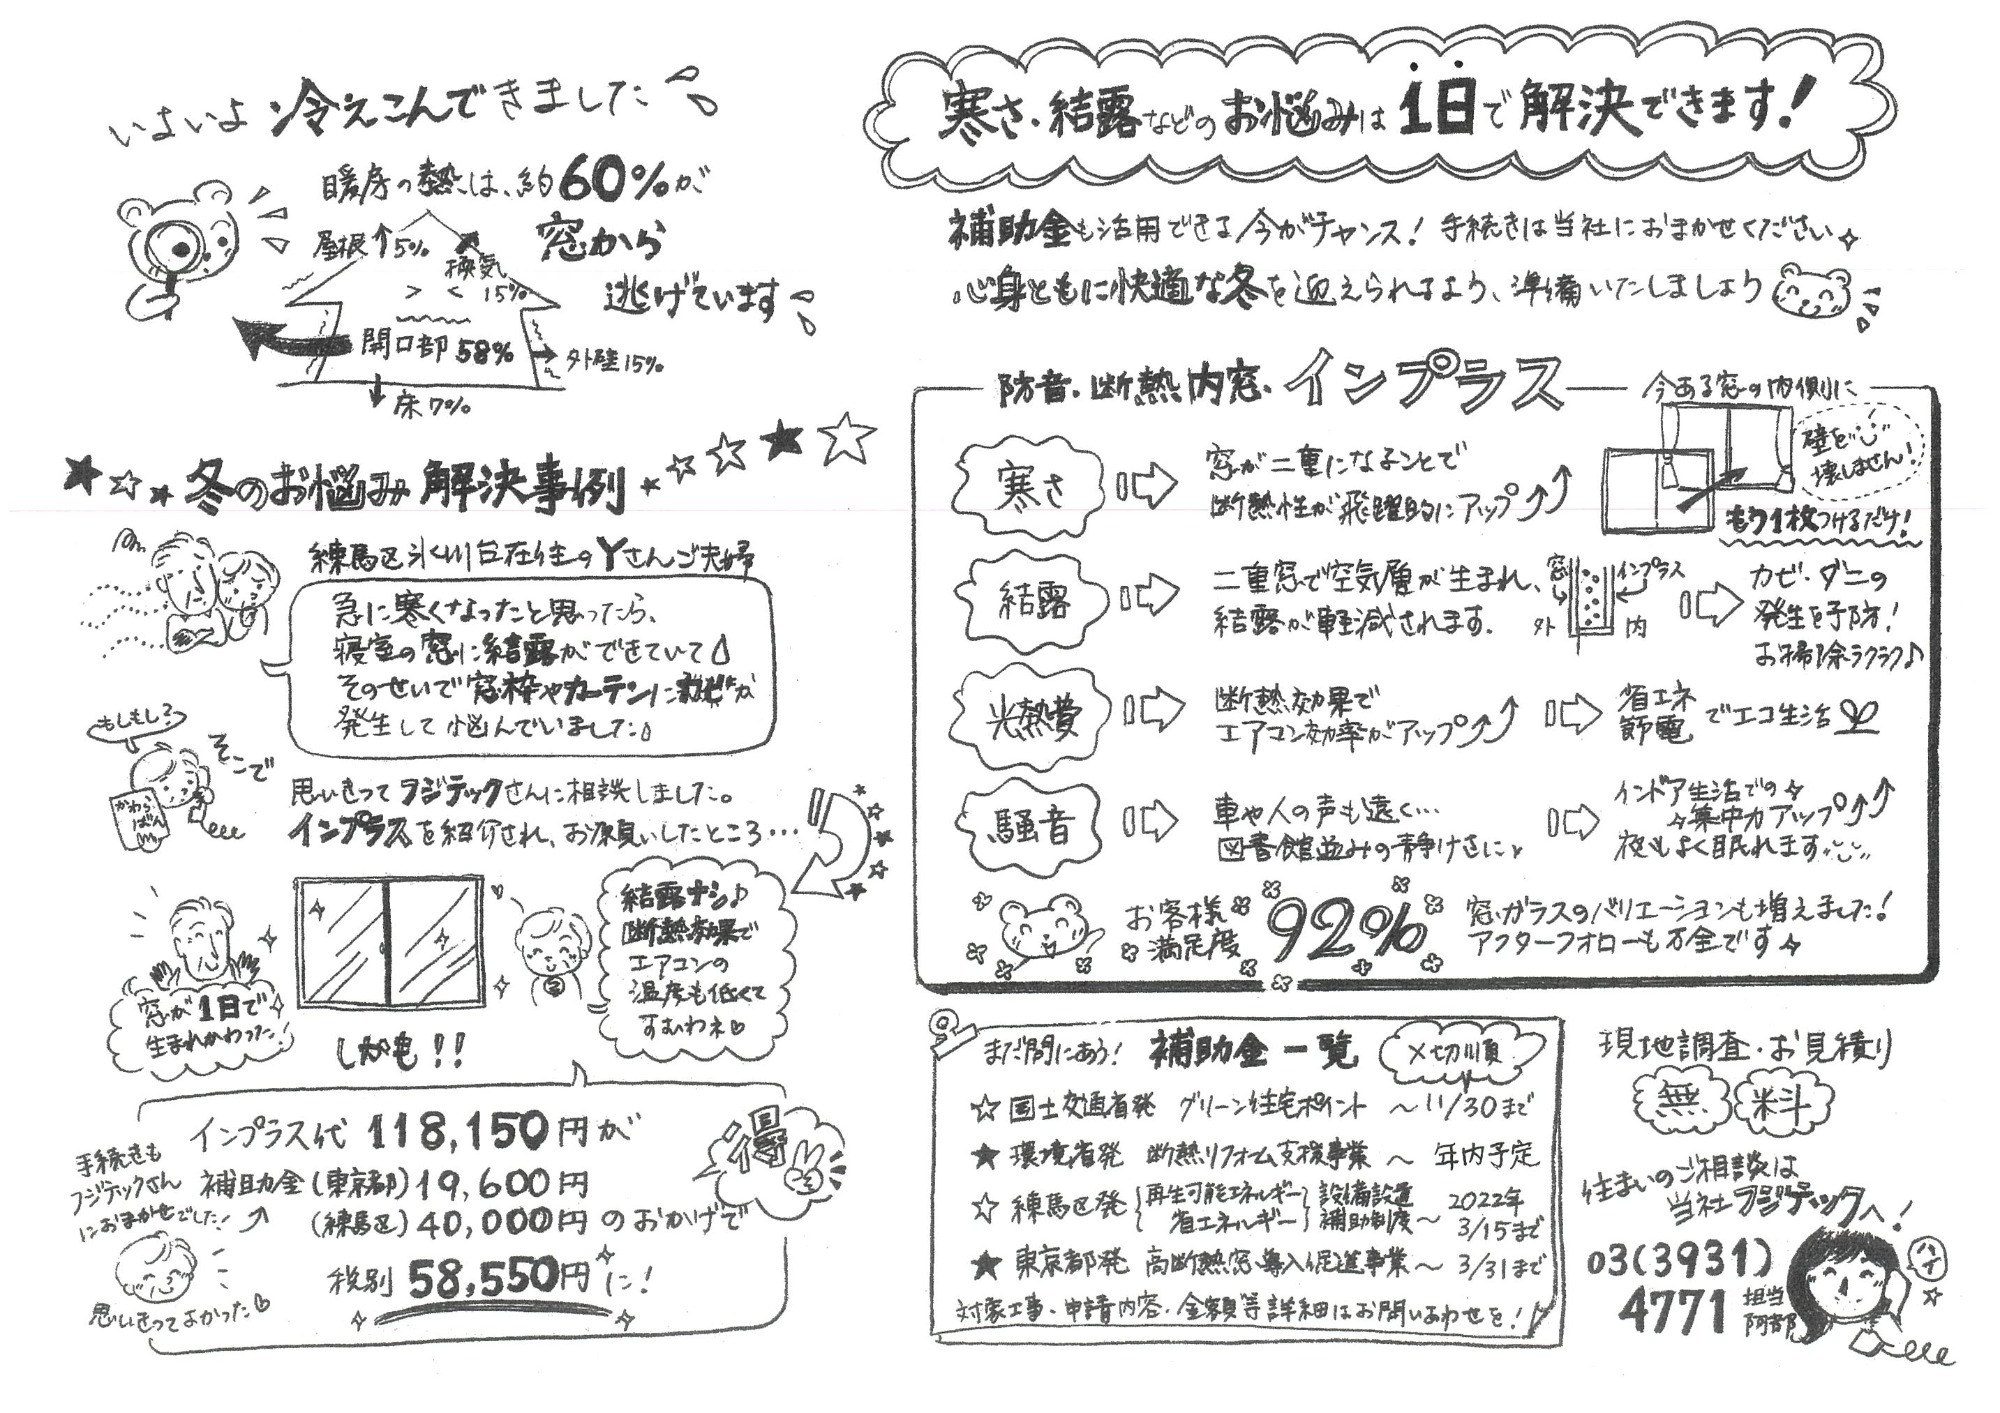 いよいよ冷えこんできました
暖房の熱は、約60%が
窓から
逃げています
屋根 5%
換気
15%
開口部 58%
外壁15%
床7%
冬のお悩み解決事例
練馬区氷川台在住のYさんご夫婦
急に寒くなったと思ったら、
寝室の窓に結露ができていて
そのせいで窓枠やカーテンにカビが
発生して悩んでいました
もしもし?
そこで
かわら
ばん
思いきってフジテックさんに相談しました。
インプラスを紹介され、お願いしたところ…
窓が1日で
生まれかわった!
結露ナシ♪
断熱効果で
エアコンの
温度も低くて
すむわネ♡
しかも!!
インプラス代 118,150円が
補助金(東京都)19,600円
(練馬区)40,000円のおかげで
税別 58,550円に!
得
手続きも
フジテックさん
におまかせでした!
思いきってよかった♡
寒さ・結露などのお悩みは1日で解決できます!
補助金も活用できる今がチャンス! 手続きは当社におまかせください
心身ともに快適な冬を迎えられるよう、準備いたしましょう
防音・断熱内窓・インプラス
今ある窓の内側に
壁を
壊しません!
もう1枚つけるだけ!
寒さ
窓が二重になることで
断熱性が飛躍的にアップ
結露
二重窓で空気層が生まれ、
結露が軽減されます.
窓
インプラス
外 内
カビ・ダニの
発生を予防!
お掃除ラクラク♪
光熱費
断熱効果で
エアコン効率がアップ
省エネ
節電 でエコ生活
騒音
車や人の声も遠く…
図書館並みの静けさに
インドア生活での
集中力アップ
夜もよく眠れます
お客様
満足度
92%
窓ガラスのバリエーションも増えました!
アフターフォローも万全です
まだ間にあう! 補助金一覧 〆切順
☆国土交通省発 グリーン住宅ポイント 〜11/30まで
★環境省発 断熱リフォーム支援事業 〜 年内予定
☆練馬区発 再生可能エネルギー 省エネルギー 設備設置 補助制度〜 2022年 3/15まで
★東京都発 高断熱窓導入促進事業〜 3/31まで
対象工事・申請内容・金額等詳細はお問いあわせを!
現地調査・お見積り
無料
住まいのご相談は
当社フジテックへ!
03(3931)
4771 担当 阿部
ハイ